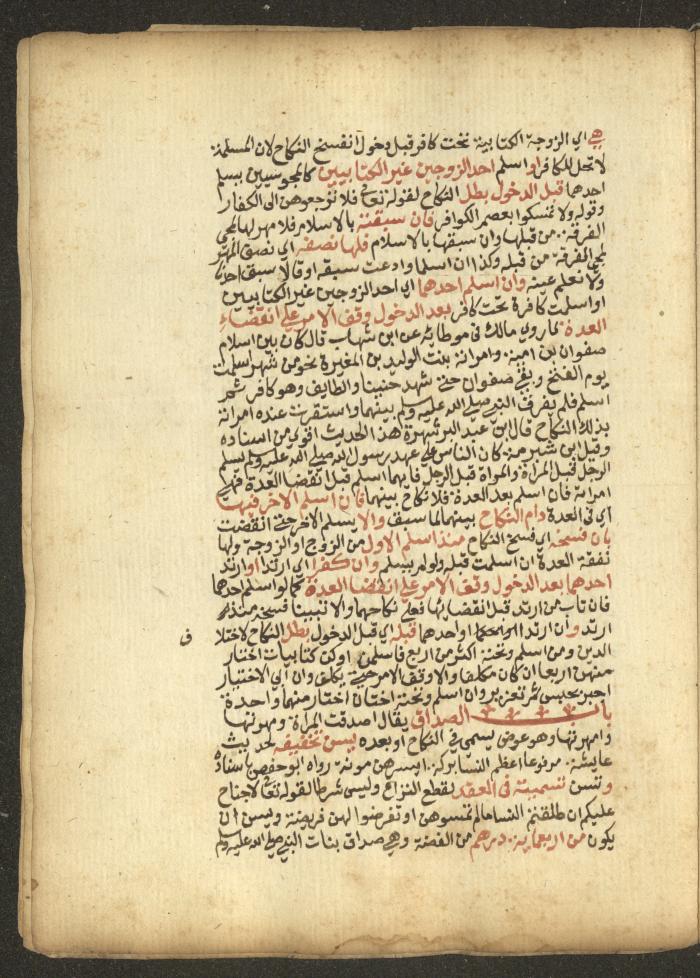 هي اي الزوجة الكتابية تحت كافر قبل دخول انفسخ النكاح لان المسلمة
لا تحل للكافر او اسلم احد الزوجين غير الكتابيين كالمجوسيين يسلم
احدهما قبل الدخول بطل النكاح لقوله تعالى فلا ترجعوهن الى الكفار
وقوله ولا تمسكوا بعصم الكوافر فان سبقته بالاسلام فلا مهر لها لمجي
الفرقة من قبلها وان سبقها بالاسلام فلها نصفه اي نصف المهر
لمجي الفرقة من قبله وكذا ان اسلما وادعت سبقه او قالا سبق احدنا
ولا نعلم عينه وان اسلم احدهما اي احد الزوجين غير الكتابيين
او اسلمت كافرة تحت كافر بعد الدخول وقف الامر على انقضاء
العدة لما روى مالك في موطائه عن ابن شهاب قال كان بين اسلام
صفوان بن امية وامراته بنت الوليد بن المغيرة نحو من شهر اسلمت
يوم الفتح وبقي صفوان حتى شهد حنينا والطايف وهو كافر ثم
اسلم فلم يفرق النبي صلى الله عليه وسلم بينهما واستقرت عنده امراته
بذلك النكاح قال ابن عبد البر شهرة هذا الحديث اقوى من اسناده
وقال ابن شبرمة كان الناس على عهد رسول الله صلى الله عليه وسلم يسلم
الرجل قبل المراة والمراة قبل الرجل فايهما اسلم قبل انقضا العدة فهي
امراته فان اسلم بعد العدة فلا نكاح بينهما فان اسلم الاخر فيها
اي في العدة دام النكاح بينهما لما سبق والا يسلم الاخر حتى انقضت
بان فسخه اي فسخ النكاح منذ اسلم الاول من الزوج او الزوجة ولها
نفقة العدة ان اسلمت قبله ولو لم يسلم وان كفرا اي ارتدا او ارتد
احدهما بعد الدخول وقف الامر على انقضا العدة كما لو اسلم احدهما
فان تاب من ارتد قبل انقضايها فعلى نكاحهما والا تبينا فسخه منذ
ارتد وان ارتدا او احدهما قبله اي قبل الدخول بطل النكاح لاختلا
ف
الدين ومن اسلم وتحته اكثر من اربع فاسلمن او كن كتابيات اختار
منهن اربعا ان كان مكلفا والا وقف الامر حتى يكلف وان ابى الاختيار
اجبر بحبس ثم تعزير وان اسلم وتحته اختان اختار منهما واحدة
باب الصداق يقال اصدقت المراة ومهرتها
وامهرتها وهو عوض يسمى في النكاح او بعده يسن تخفيفه لحديث
عايشة مرفوعا اعظم النسا بركة ايسرهن مونة رواه ابو حفص باسناده
وتسن تسميته في العقد لقطع النزاع وليس شرطا لقوله تعالى لا جناح
عليكم ان طلقتم النسا ما لم تمسوهن او تفرضوا لهن فريضة ويسن ان
يكون من اربعماية درهم من الفضة وهي صداق بنات النبي صلى الله عليه وسلم